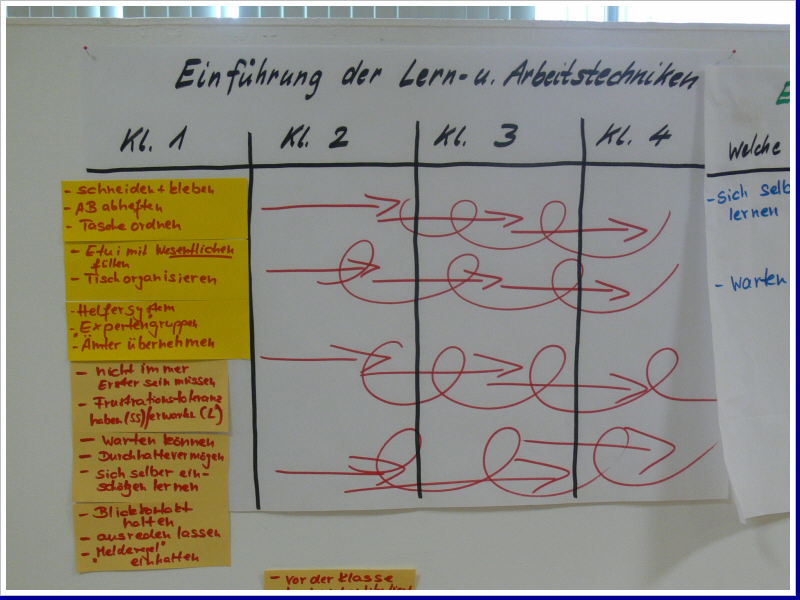 Einführung der Lern- u. Arbeitstechniken
Kl. 1
Kl. 2
Kl. 3
Kl. 4
- schneiden + kleben
- AB abheften
- Tasche ordnen
- Etui mit Wesentlichen
füllen
- Tisch organisieren
- Helfersystem
- Expertengruppen
- Ämter übernehmen
- nicht immer
Erster sein müssen
- Frustrationstoleranz
haben (SS)/erwerben (L)
- Warten können
- Durchhaltevermögen
- sich selber ein-
schätzen lernen
- Blickkontakt
halten
- ausreden lassen
- "Melderegel"
einhalten
- vor der Klasse
E
Welche
- Sich selb
lernen
- Warten